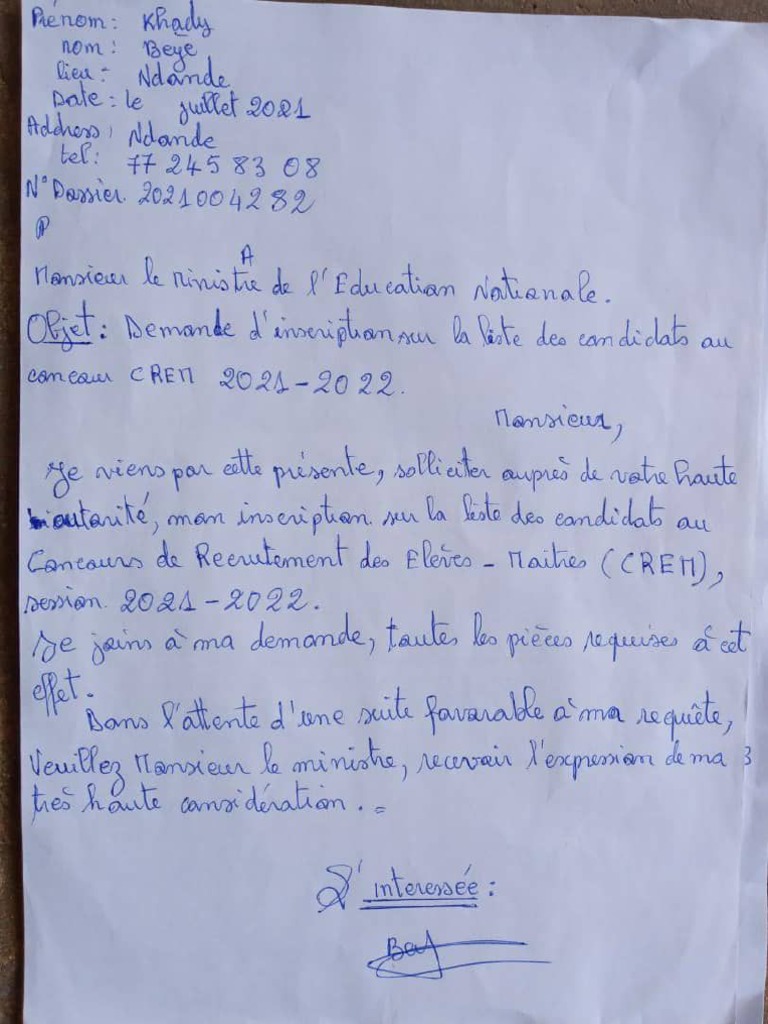 Prénom : Khady
nom : Beye
lieu : Ndande
Date : le juillet 2021
Address : Ndande
tel : 77 245 83 08
N° Dossier. 2021004282
A
Monsieur le Ministre de l'Education Nationale.
Objet : Demande d'inscription sur la liste des candidats au
concour CREM 2021-2022.
Monsieur,
Je viens par cette présente, solliciter auprès de votre haute
autorité, mon inscription sur la liste des candidats au
Concours de Recrutement des Elèves - Maitres (CREM),
session 2021-2022.
Je joins à ma demande, toutes les pièces requises à cet
effet.
Dans l'attente d'une suite favorable à ma requête,
Veuillez Monsieur le ministre, recevoir l'expression de ma
très haute considération.
L'interessée :